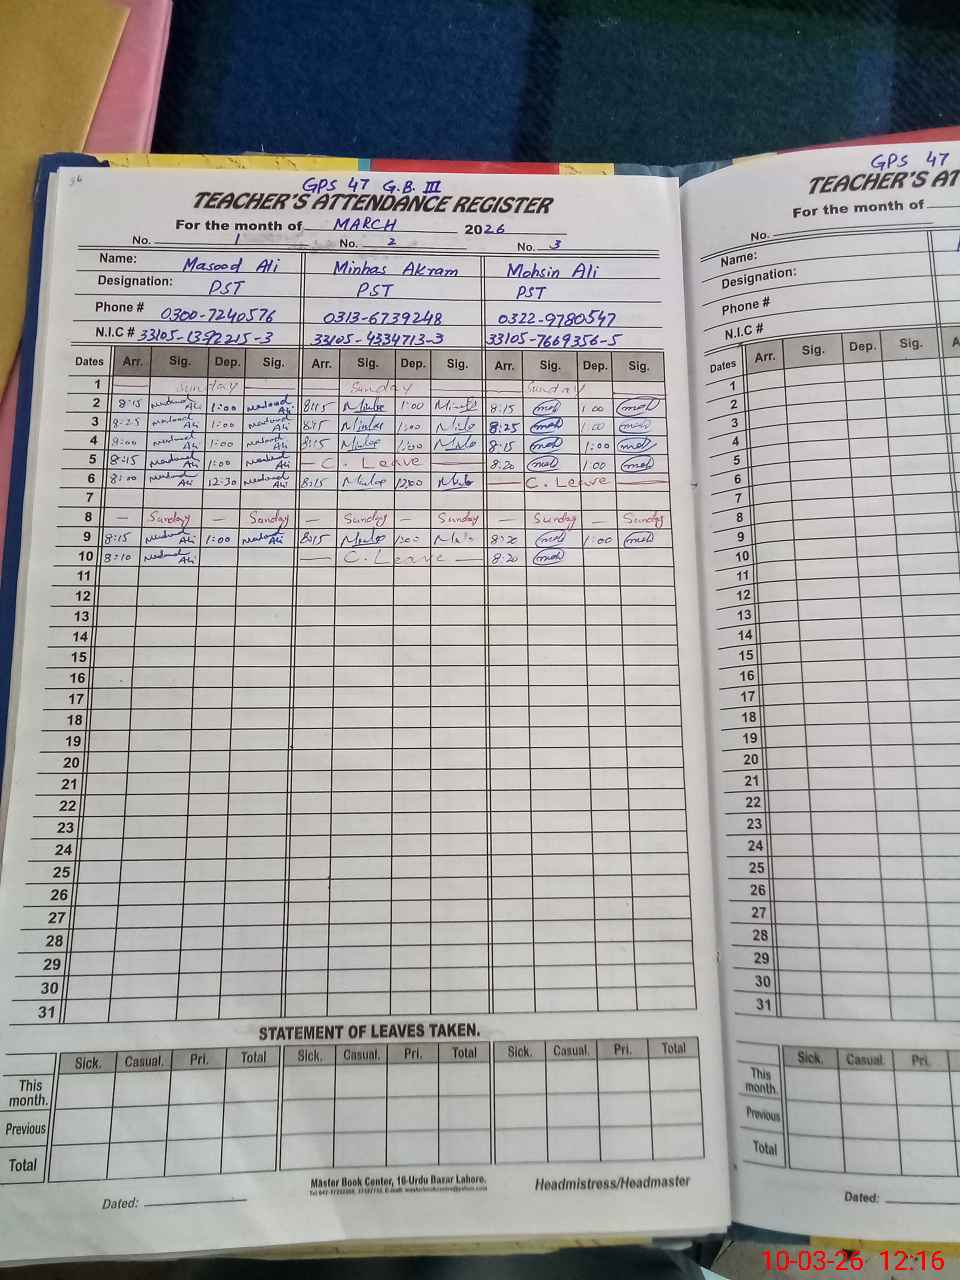 GPS 47 G.B. III
TEACHER'S ATTENDANCE REGISTER
For the month of MARCH 2026
No. 1 No. 2 No. 3
Name: Masood Ali Minhas Akram Mohsin Ali
Designation: PST PST PST
Phone # 0300-7240576 0313-6739248 0322-9780547
N.I.C # 33105-1392215-3 33105-4334713-3 33105-7669356-5
Dates Arr. Sig. Dep. Sig. Arr. Sig. Dep. Sig. Arr. Sig. Dep. Sig.
1 Sunday Sunday Sunday
2 8:15 Masood Ali 1:00 Masood Ali 8:15 1:00 8:15 1:00
3 8:25 Masood Ali 1:00 Masood Ali 8:15 1:00 8:25 1:00
4 Masood Ali 1:00 Masood Ali 8:15 1:00 8:15 1:00
5 8:15 Masood Ali 1:00 Masood Ali C. Leave 8:20 1:00
6 8:00 Masood Ali 12:30 Masood Ali 8:15 C. Leave
7
8 — Sunday — Sunday — Sunday — Sunday — Sunday — Sunday
9 8:15 Masood Ali 1:00 Masood Ali 8:15 8:20 1:00
10 8:10 Masood Ali C. Leave 8:20
11
12
13
14
15
16
17
18
19
20
21
22
23
24
25
26
27
28
29
30
31
STATEMENT OF LEAVES TAKEN.
Sick. Casual. Pri. Total Sick. Casual. Pri. Total Sick. Casual. Pri. Total
This month.
Previous
Total
Master Book Center, 16-Urdu Bazar Lahore.
Dated: Headmistress/Headmaster
GPS 47
TEACHER'S AT
For the month of
No.
Name:
Designation:
Phone #
N.I.C #
Dates Arr. Sig. Dep. Sig. A
1
2
3
4
5
6
7
8
9
10
11
12
13
14
15
16
17
18
19
20
21
22
23
24
25
26
27
28
29
30
31
Sick. Casual. Pri.
This month.
Previous
Total
Dated:
10-03-26 12:16